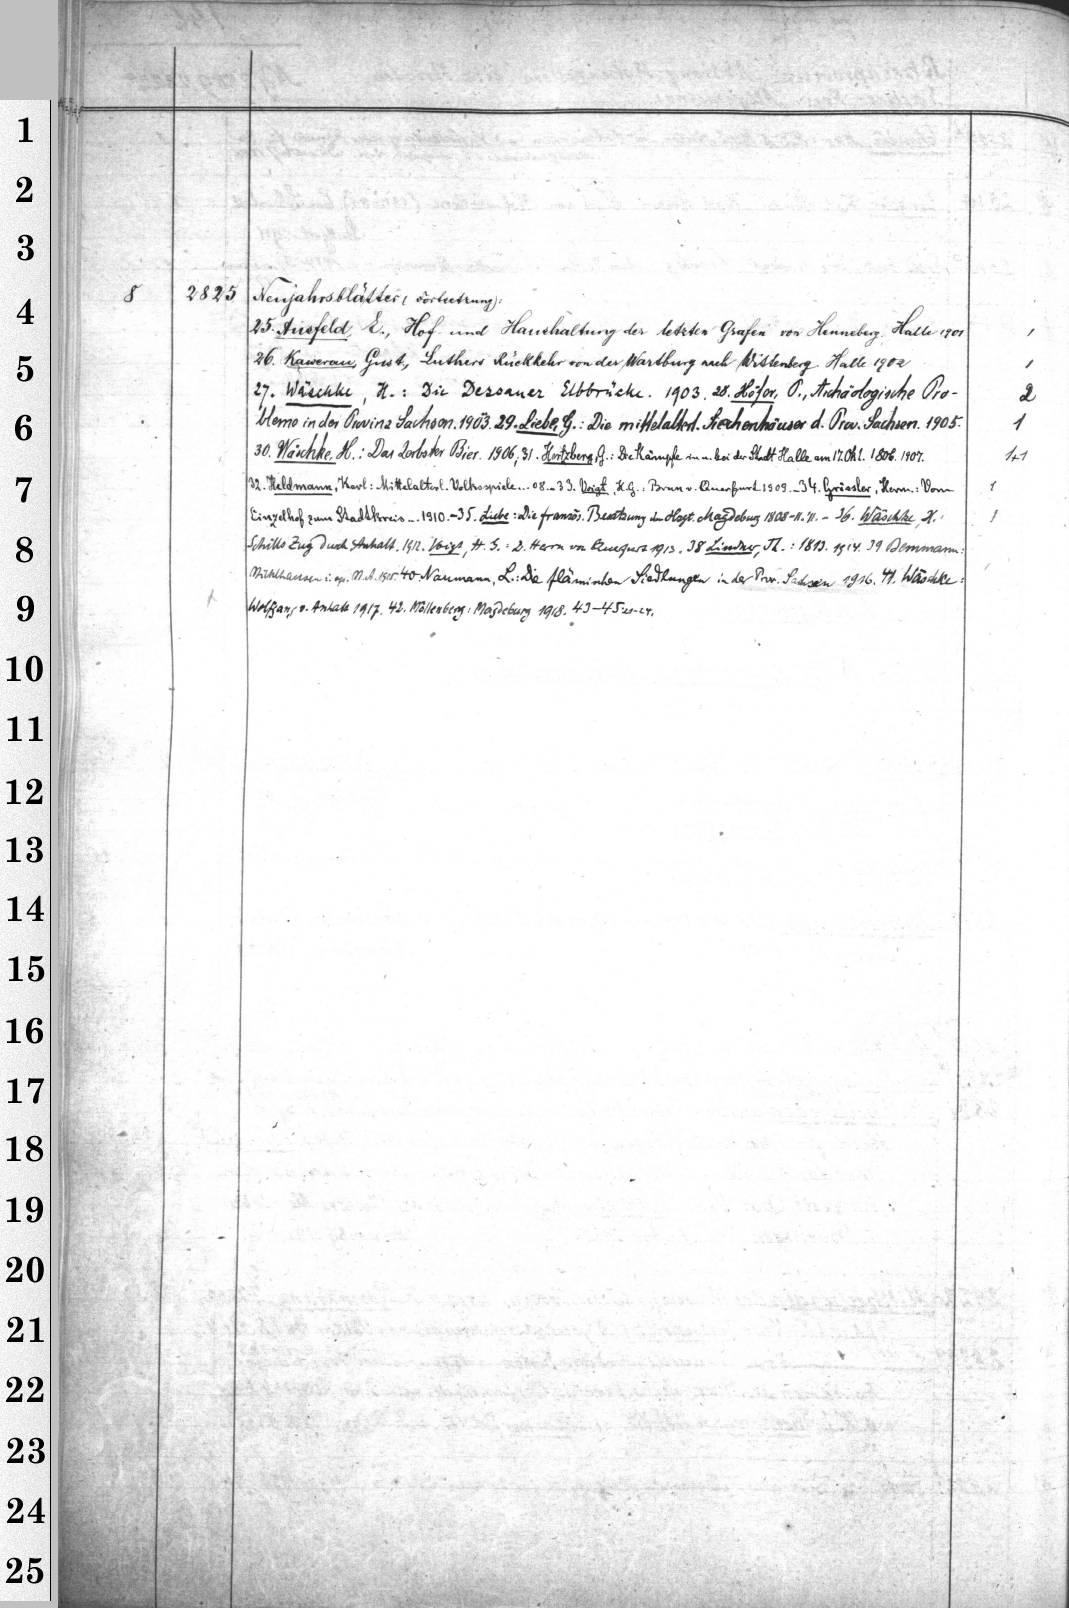 1
2
3
8 2825 Neujahrsblätter (Fortsetzung):
4
25. Ausfeld, E., Hof und Haushaltung der letzten Grafen von Henneberg. Halle 1901 1
5
26. Kawerau, Gust., Luthers Rückkehr von der Wartburg nach Wittenberg Halle 1902 1
27. Wäschke, H.: Die Dessauer Elbbrücke. 1903. 28. Höfer, P., Archäologische Pro- 2
6
bleme in der Provinz Sachsen. 1903. 29. Liebe, G.: Die mittelalterl. Siechenhäuser d. Prov. Sachsen. 1905. 1
30. Wäschke, H.: Das Zerbster Bier. 1906, 31. Hertzberg, G.: Die Kämpfe in u. bei der Stadt Halle am 17. Okt. 1806. 1907. 1+1
7
32. Heldmann, Karl: Mittelalterl. Volksspiele... 08.-33. Voigt, H.G.: Brun v. Querfurt 1909.-34. Grössler, Herm.: Vom 1
Einzelhof zum Stadtkreis... 1910.-35. Liebe: Die französ. Besetzung im Hzgt. Magdeburg 1808-11. 11. - 36. Wäschke, H.: 1
8
Schills Zug durch Anhalt. 1912. Voigt, H. G.: D. Herrn von Querfurt 1913. 38 Lindner, Th.: 1813. 1914. 39 Bemmann:
Mühlhausen i. sp. M.A. 1915. 40 Naumann, L.: Die flämischen Siedlungen in der Prov. Sachsen 1916. 41. Wäschke:
9
Wolfgang v. Anhalt 1917. 42. Möllenberg: Magdeburg 1918. 43-45 21-24.
10
11
12
13
14
15
16
17
18
19
20
21
22
23
24
25